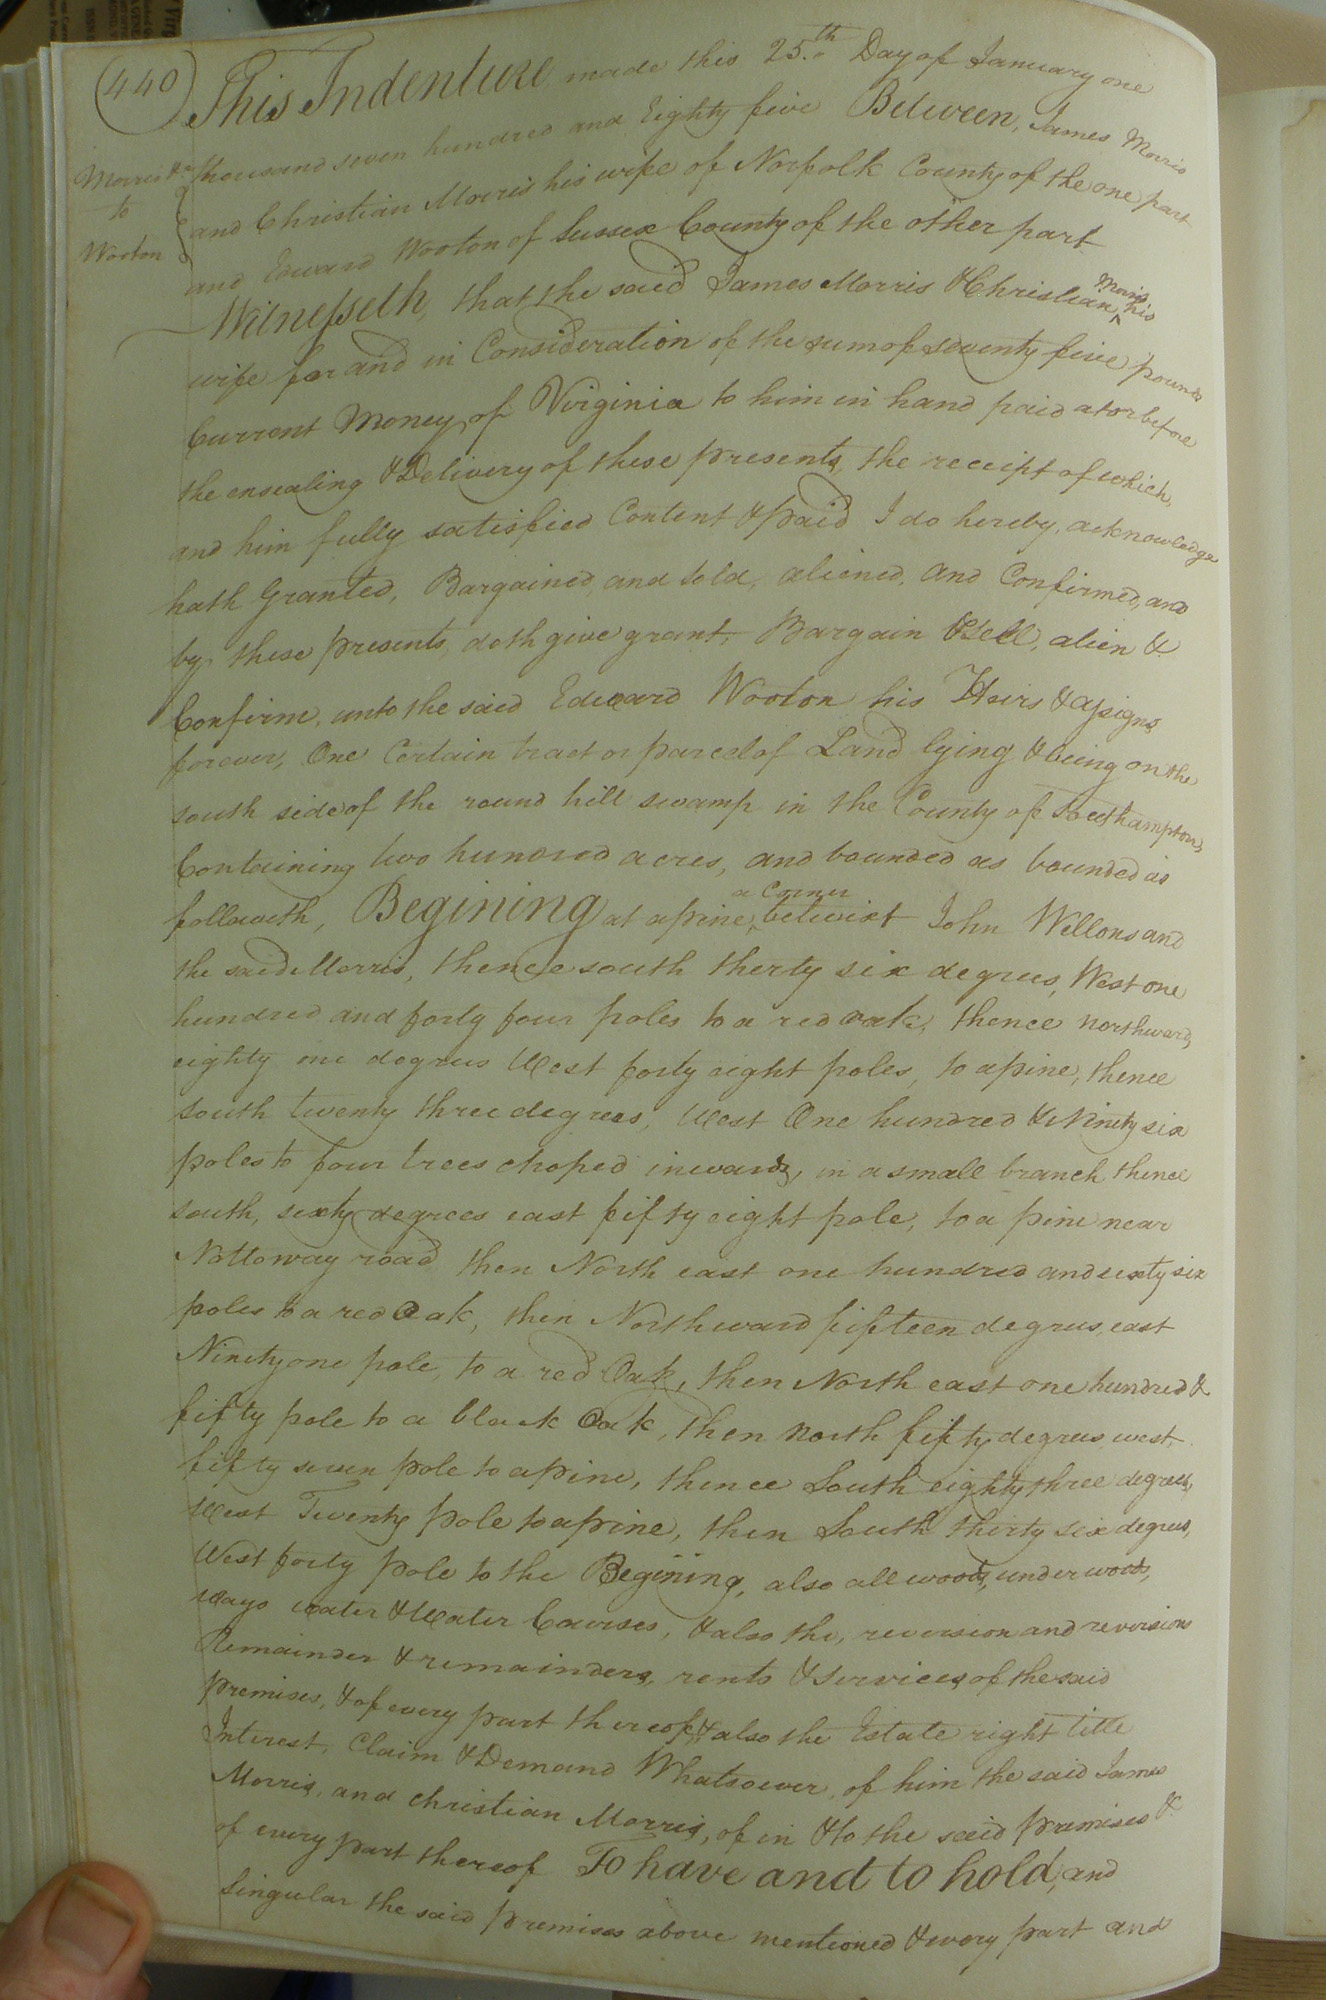 (440)
This Indenture made this 25.th Day of January one
thousand seven hundred and Eighty five Between, James Morris
Morris &c
to
Wooton
and Christian Morris his wife of Norfolk County of the one part
and Edward Wooton of Sussex County of the other part
Witnesseth, that the said James Morris & Christian, Morris his
wife for and in Consideration of the sum of seventy five pounds
Current Money of Virginia to him in hand paid at or before
the ensealing & Delivery of these presents, the receipt of which,
and him fully satisfied Content & paid I do hereby, acknowledge
hath Granted, Bargained, and sold, aliened, and Confirmed, and
by these presents, doth give grant, Bargain & sell, alien &
Confirm, unto the said Edward Wooton his Heirs & assigns
forever, One Certain tract or parcel of Land lying & being on the
south side of the round hill swamp in the County of Southampton,
Containing two hundred acres, and bounded as bounded as
followeth, Begining at a pine, a Corner betwixt John Wellons and
the said Morris, thence south therty six degrees, West one
hundred and forty four poles to a red oak, thence northward,
eighty one degrees West forty eight poles, to a pine, thence
south twenty three degrees, West One hundred & Ninety six
poles to four trees choped inwards, in a small branch thence
south, sixty degrees east fifty eight pole, to a pine near
Nottoway road then North east one hundred and sixty six
poles to a red Oak, then Northward fifteen degrees, east
Ninety one pole, to a red Oak, then North east one hundred &
fifty pole to a black Oak, then North fifty degrees west,
fifty seven pole to a pine, thence South eighty three degrees,
West Twenty pole to a pine, then South thirty six degrees,
West forty pole to the Begining, also all woods, under woods,
ways water & Water Courses, & also the, reversion and reversions
Remainder & remainders, rents & services of the said
premises, & of every part thereof, & also the Estate right title
Interest, Claim & Demand Whatsoever, of him the said James
Morris, and christian Morris, of in & to the said premises &
of every part thereof To have and to hold, and
Singular the said premises above mentioned & every part and